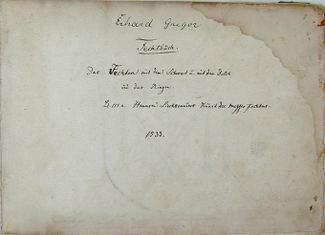 Erhard Gregor
Fechtbuch.
Das Fechten mit dem Schwert u. mit dem Dolch
und das Ringen
Hannsen Kunst des Messer fechtens.
1533.